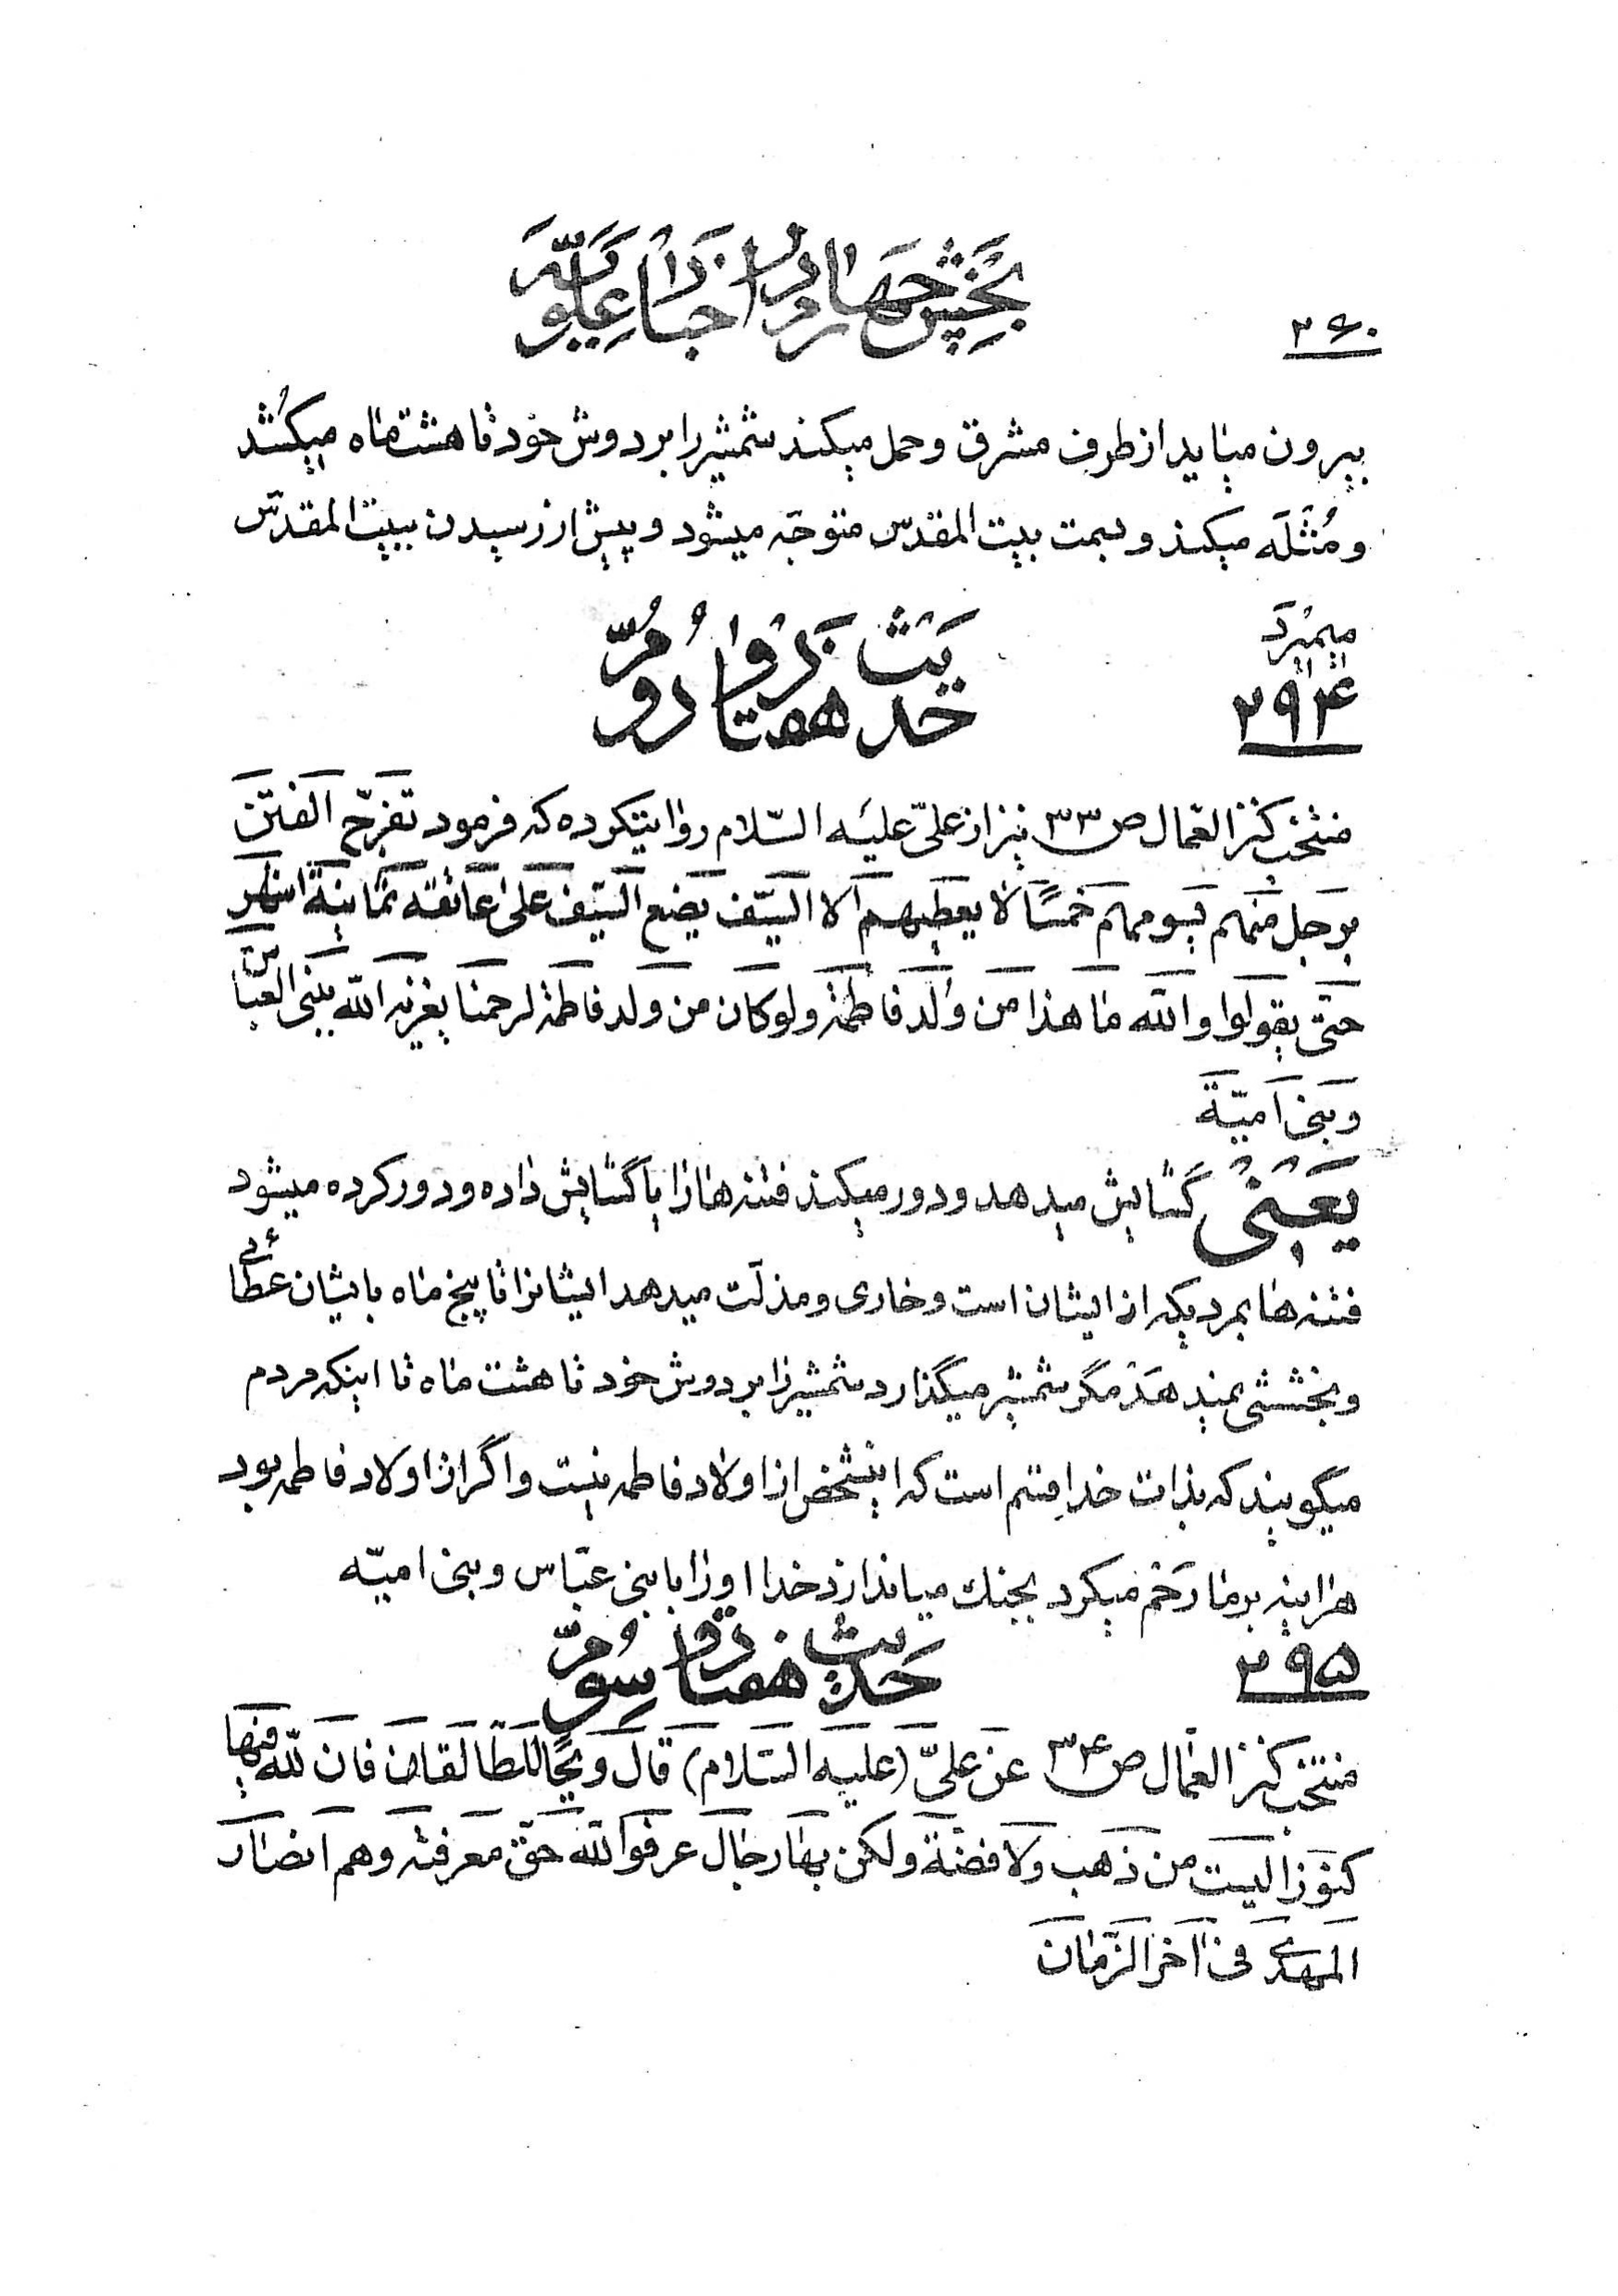 ۲۶۰
بخش چهارم در اخبار علویه
بیرون میاید از طرف مشرق و حمل میکند شمشیر را بر دوش خود تا هشت ماه میکشد
و مُثلَه میکند و بسمت بیت المقدس متوجّه میشود و پیش از رسیدن ببیت المقدّس
میمیرد
۲۹۴ حدیث هفتاد و دومّ
منتخب کنز العمال ص ۳۳ نیز از علیّ علیه السّلام روایتکرده که فرمود تفرّج الفتن
برجل منهم یسومهم خمسًا لا یعطیهم الا السّیف یضع السّیف علی عاتقه ثمانیة اشهر
حتّی یقولوا والله ما هذا من وُلد فاطمة ولو کان من ولد فاطمة لرحمنا یغزیه الله ببنی العباس
وبنی امیّة
یَعنی گشایش میدهد و دور میکند فتنه ها را یا گشایش داده و دور کرده میشود
فتنه ها بمردیکه از ایشان است و خاری و مذلّت میدهد ایشانرا تا پنج ماه بایشان عطائی
و بخششی نمیدهد مگر شمشیر میگذارد شمشیر را بر دوش خود تا هشت ماه تا اینکه مردم
میگویند که بذات خدا قسم است که اینشخص از اولاد فاطمه نیست و اگر از اولاد فاطمه بود
هراینه بر ما رحم میکرد بجنك میاندازد خدا او را با بنی عبّاس و بنی امیّه
۲۹۵ حدیث هفتاد و سومّ
منتخب کنز العمال ص ۳۴ عن علیّ (علیه السّلام) قال ویحًا للطالقان فان لله فیها
کنوزا لیست من ذهب ولا فضّة ولکن بها رجال عرفوا الله حقّ معرفته وهم انصار
المهدی فی آخر الزّمان